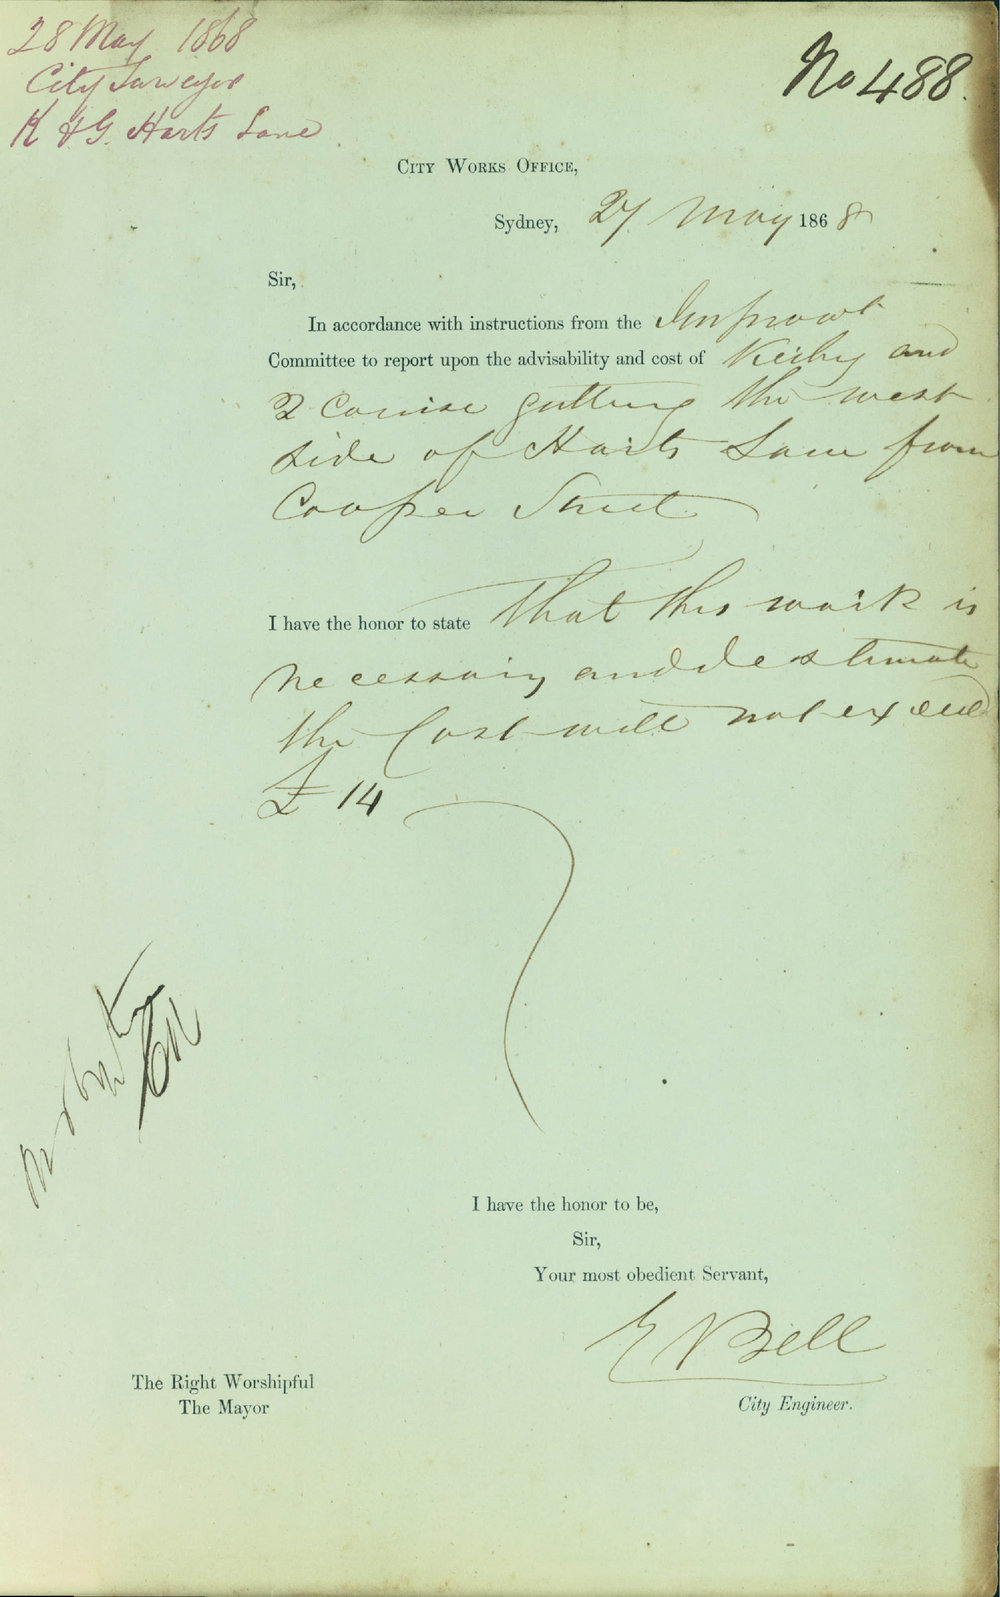 28 May 1868
City Surveyor
K & G. Harts Lane
No 488.
CITY WORKS OFFICE,
Sydney, 27 May 1868
Sir,
In accordance with instructions from the Improvmt
Committee to report upon the advisability and cost of Kerbg and
2 course guttering the west
side of Harts Lane from
Cooper Street
I have the honor to state that this work is
necessary and I estimate
the Cost will not exceed
£ 14
I have the honor to be,
Sir,
Your most obedient Servant,
E Bell
The Right Worshipful
The Mayor
City Engineer.